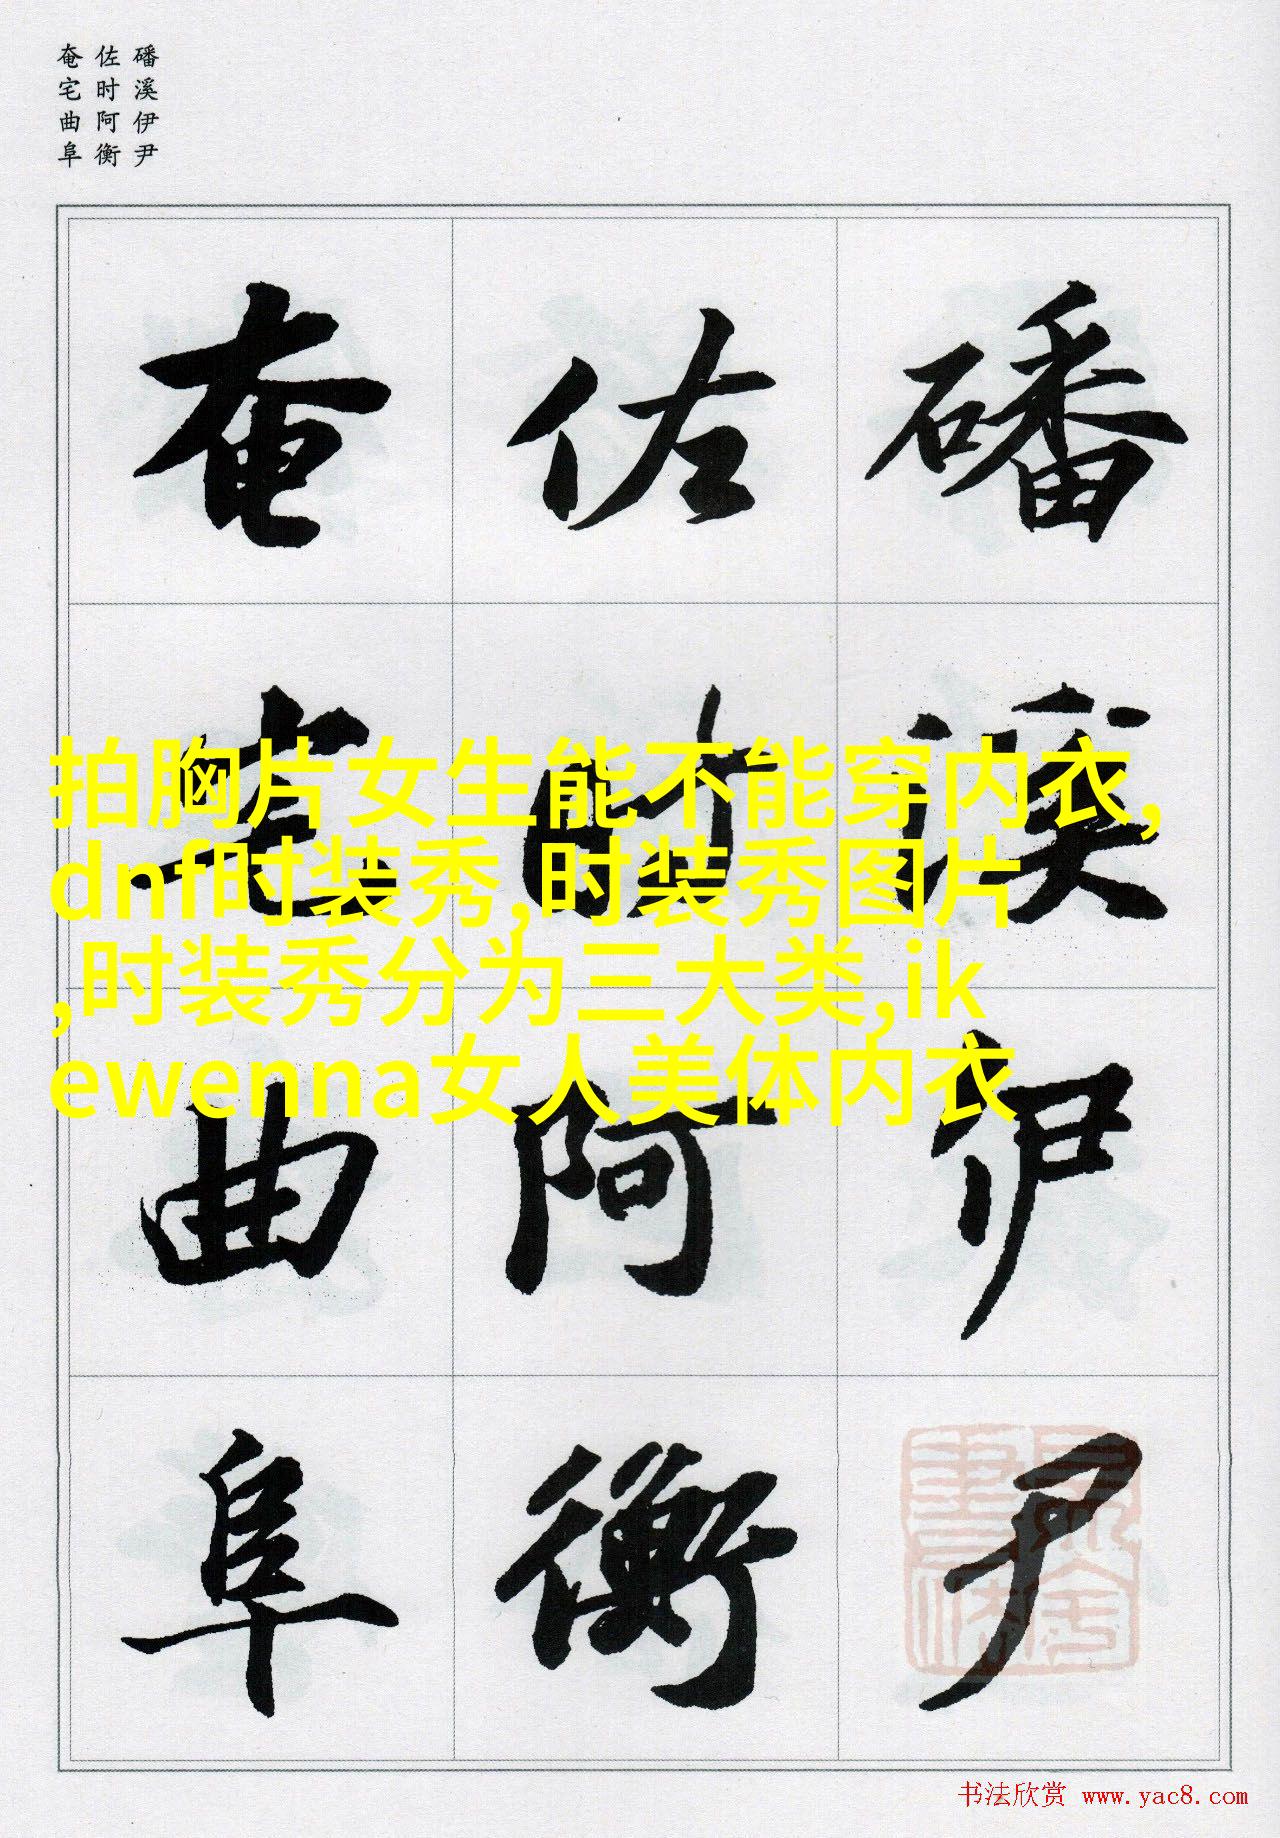 磻溪伊尹
佐时阿衡
奄宅曲阜
磻溪伊尹
佐时阿衡
奄宅曲阜
拍胸片女生能不能穿内衣,
dnf时装秀,时装秀图片
,时装秀分为三大类,ik
ewenna女人美体内衣
书法欣赏 www.yac8.com